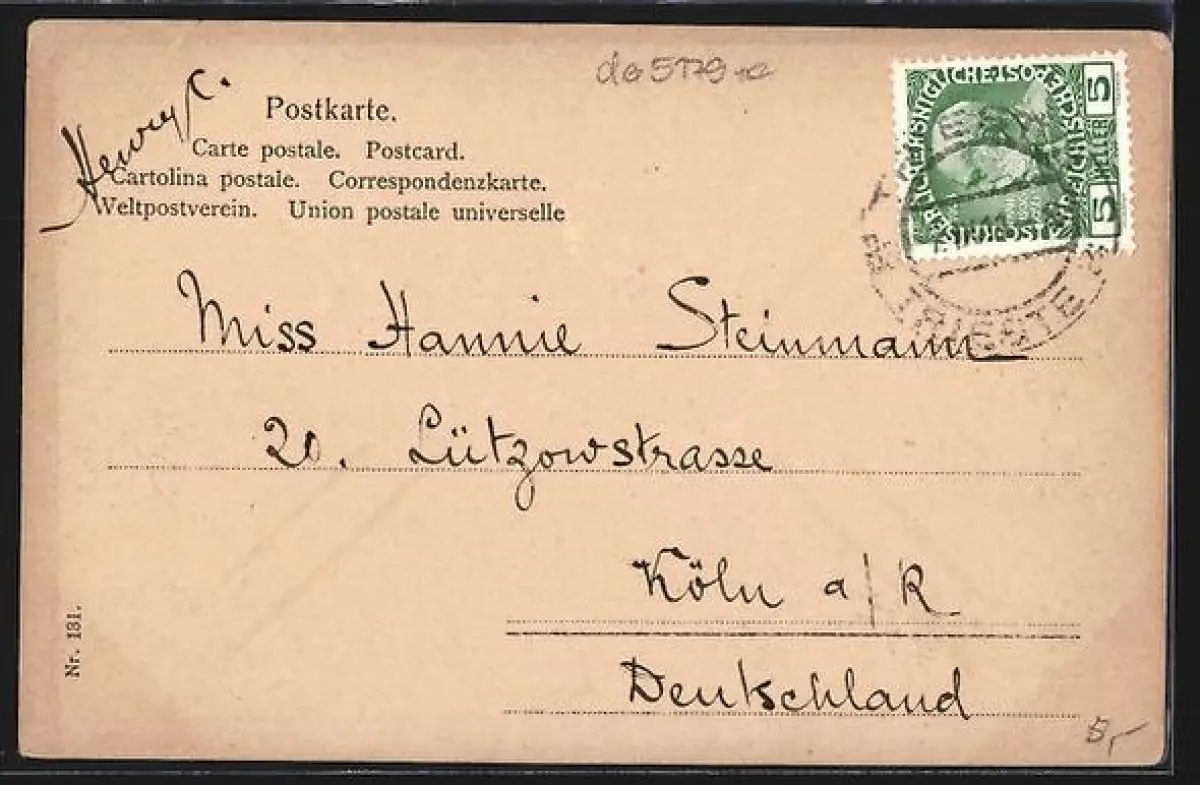 Henry C.
Postkarte.
Carte postale. Postcard.
Cartolina postale. Correspondenzkarte.
Weltpostverein. Union postale universelle
5 HELLER 5
TRIESTE
Miss Hannie Steinmann
20. Lützowstrasse
Köln a/R
Deutschland
Nr. 131.
5,-